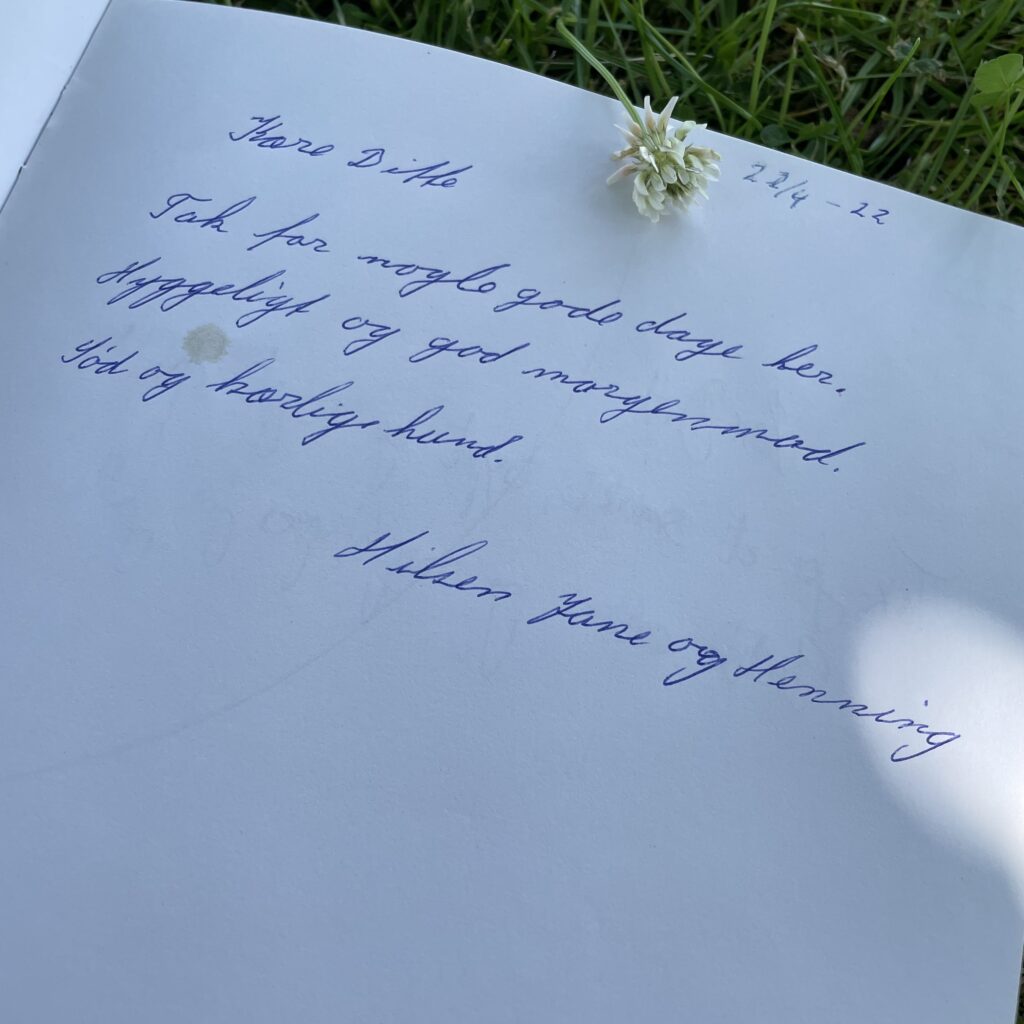 Kære Ditte
22/4 - 22
Tak for nogle gode dage her.
Hyggeligt og god morgenmad.
Sød og kærlig hund.
Hilsen Jane og Henning